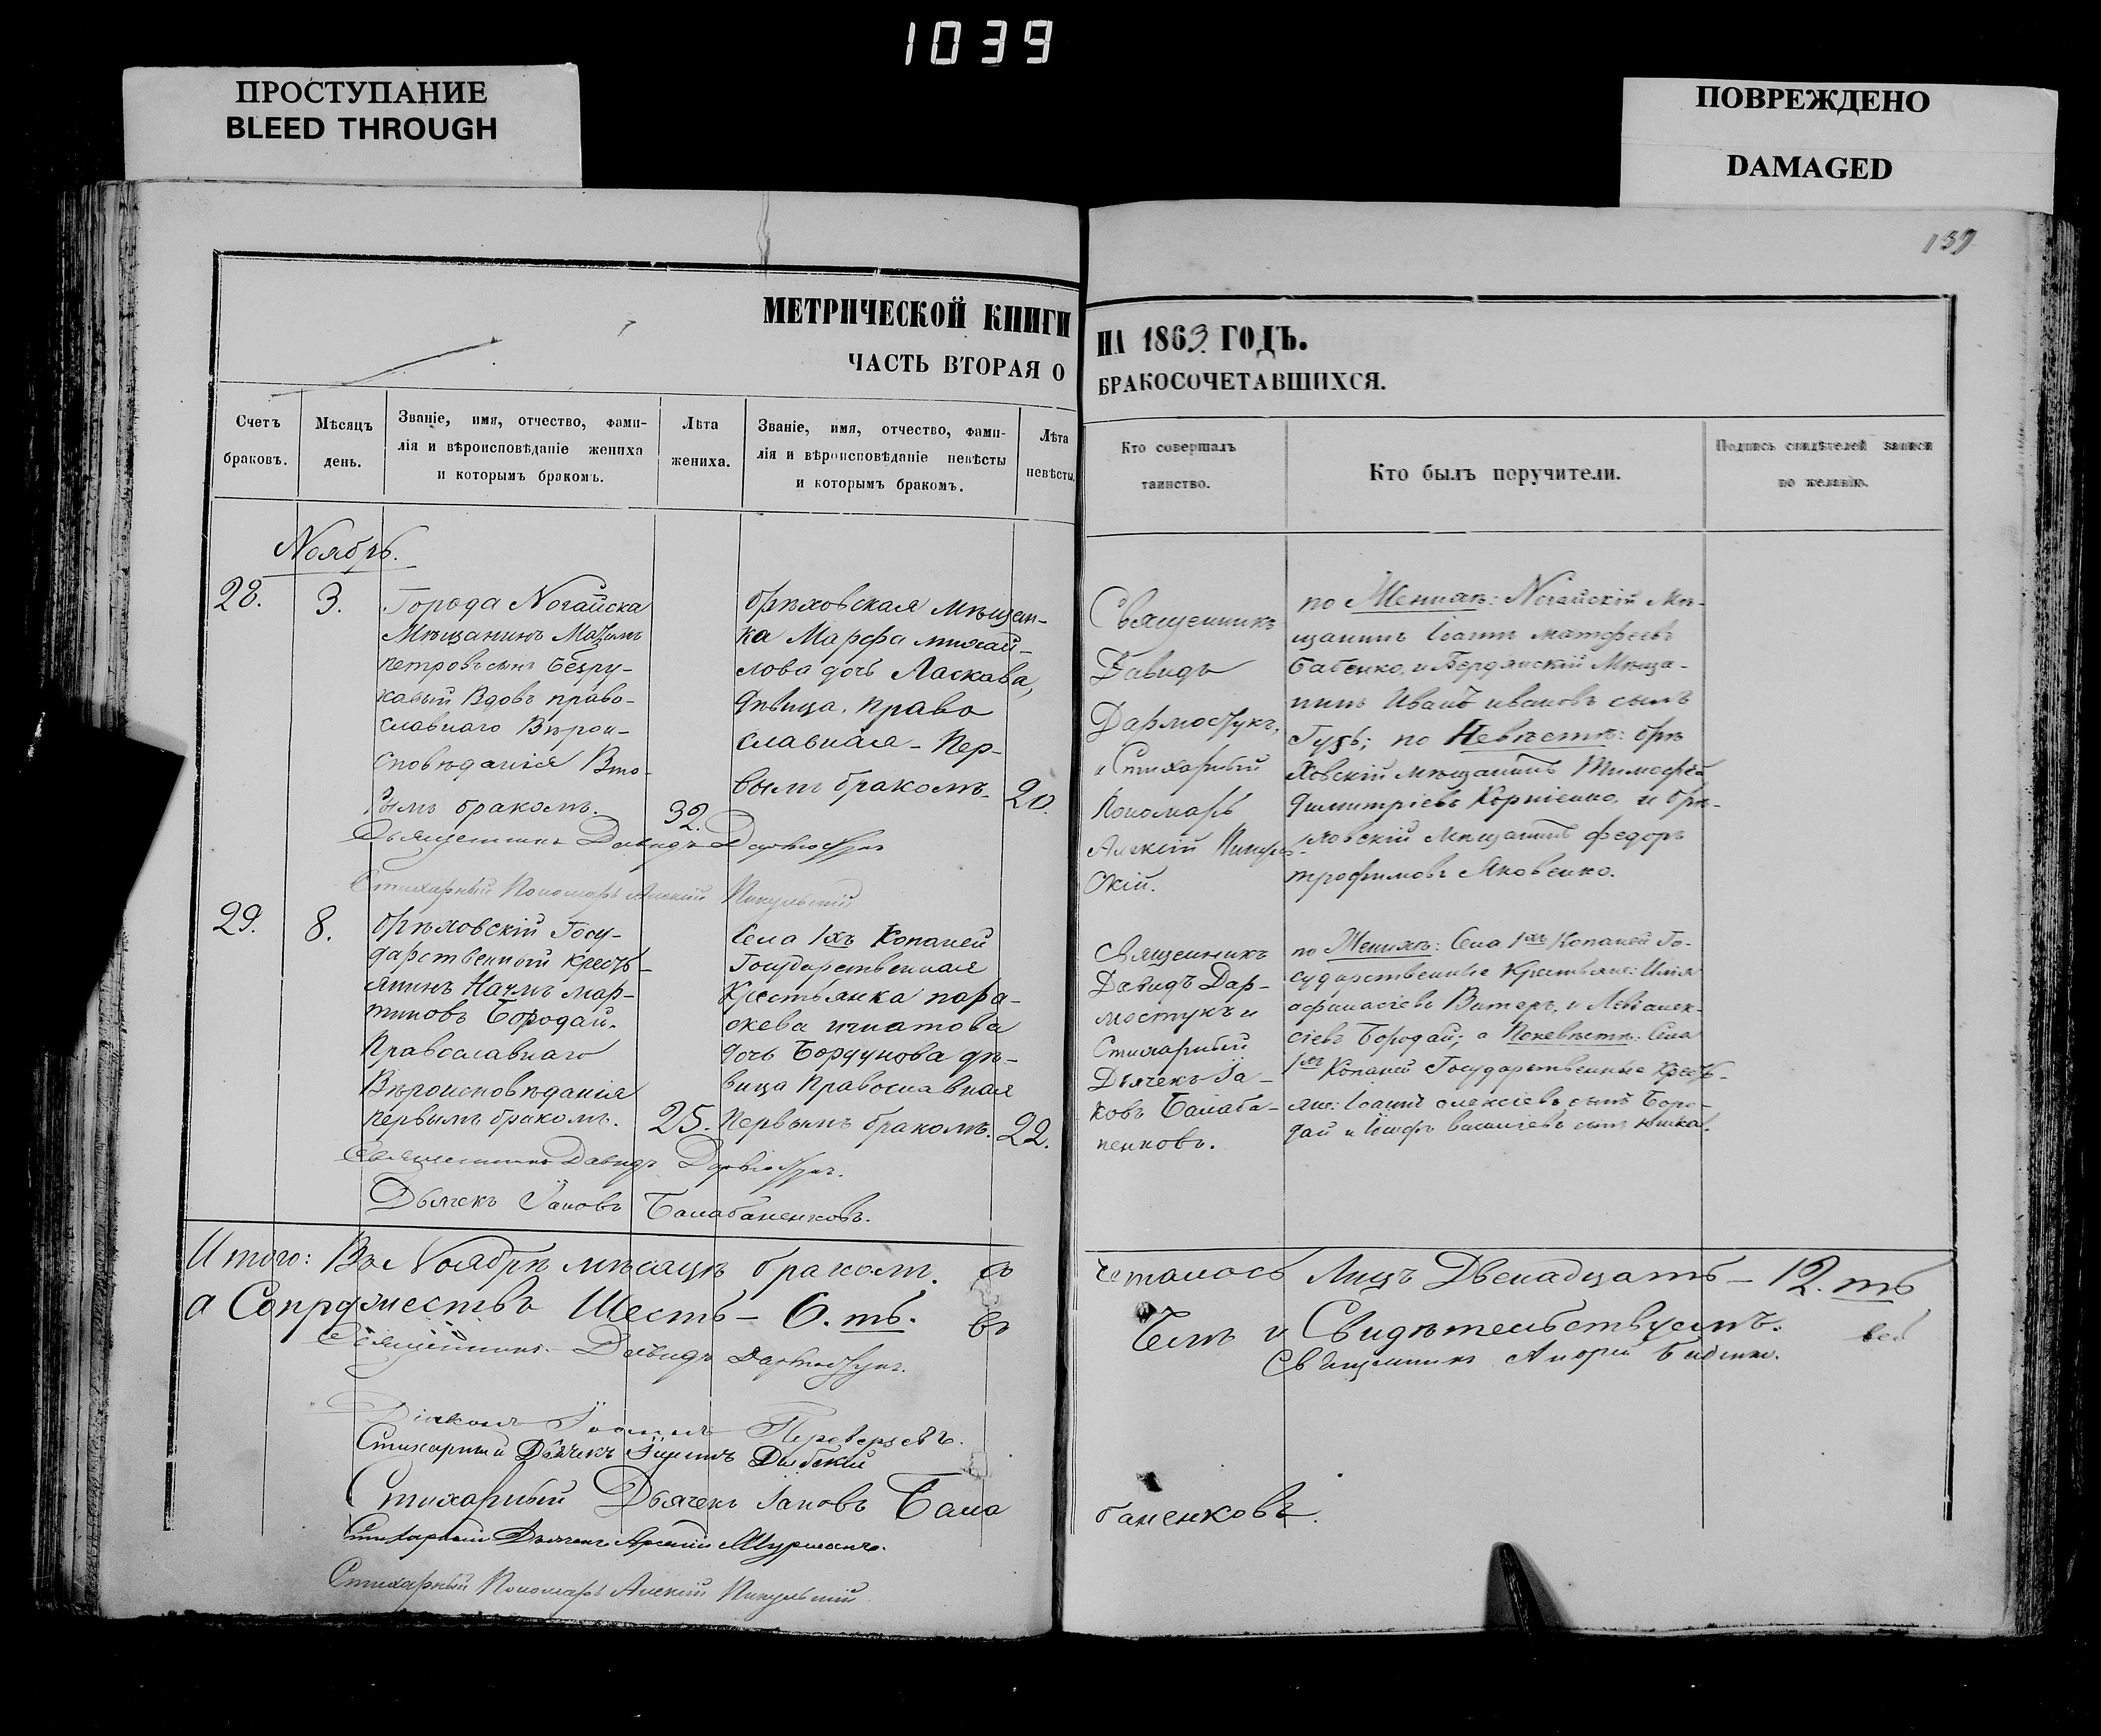 1039
ПРОСТУПАНИЕ
BLEED THROUGH
ПОВРЕЖДЕНО
DAMAGED
МЕТРИЧЕСКОЙ КНИГИ
НА 1863 ГОДЪ.
ЧАСТЬ ВТОРАЯ О
БРАКОСОЧЕТАВШИХСЯ.
Счетъ
браковъ.
Мѣсяцъ
день.
Званіе, имя, отчество, фами-
лія и вѣроисповѣданіе жениха
и которымъ бракомъ.
Лѣта
жениха.
Званіе, имя, отчество, фами-
лія и вѣроисповѣданіе невѣсты
и которымъ бракомъ.
Лѣта
невѣсты.
Кто совершалъ
таинство.
Кто былъ поручители.
Подпись свидѣтелей записи
по желанію.
Ноябрь.
28.
3.
Города Ногайска
Мѣщанинъ
петровъ сынъ Безру-
кавый Вдовъ право-
славнаго Вѣрои-
сповѣданія Вто-
рымъ бракомъ.
32.
Орѣховская мѣщан-
ка Марфа михай-
лова дочь Ласкава,
дѣвица, право
славная - Пер-
вымъ бракомъ.
20.
Священникъ
Давидъ
Дармостукъ,
и Стихарный
Пономарь
Алексій
по Женихѣ: Ногайскій Мѣ-
щанинъ Іоаннъ матфеевъ
Бабенко, и Бердянскій Мѣща-
нинъ Иванъ ивановъ сынъ
Гузь; по Невѣстѣ: Орѣ
ховскій мѣщанинъ Тимофей
димитріевъ Корніенко, и Орѣ-
ховскій мѣщанинъ федоръ
трофимовъ Яковенко.
Священникъ Давидъ Дармостукъ
Стихарный Пономарь Алексій
29.
8.
Орѣховскій Госу-
дарственный кресть-
янинъ Наумъ мар-
тиновъ Бородай.
Православнаго
Вѣроисповѣданія
первымъ бракомъ.
25.
Села 1хъ Копаней
Государственная
Крестьянка пара-
скева игнатова
дочь Бордунова дѣ-
вица Православная
Первымъ бракомъ.
22.
Священникъ
Давидъ Дар-
мостукъ и
Стихарный
Дьячекъ Іа-
ковъ Балаба-
ненковъ.
по Женихѣ: Села 1хъ Копаней Го-
сударственные Крестьяне: Илія
афанасіевъ и алек-
сіевъ Бородай; а Поневѣстѣ: Села
1хъ Копаней Государственные Кресть-
яне: Іоаннъ алексіевъ сынъ Боро-
дай и Іосифъ сынъ
Священникъ Давидъ Дармостукъ.
Дьячекъ Іаковъ Балабаненковъ.
Итого: Въ Ноябрѣ мѣсяцѣ бракомъ. со
четалось Лицъ Двенадцать - 12. ть
а Супружествъ Шесть - 6. ть. въ
Чемъ и Свидѣтельствуемъ:
Священникъ Давидъ Дармостукъ.
Священникъ Андрей
Діаконъ Іоаннъ Переверзевъ.
Стихарный Дьячекъ
Стихарный Дьячекъ Іаковъ Бала
баненковъ.
Стихарный Дьячекъ
Стихарный Пономарь Алексій